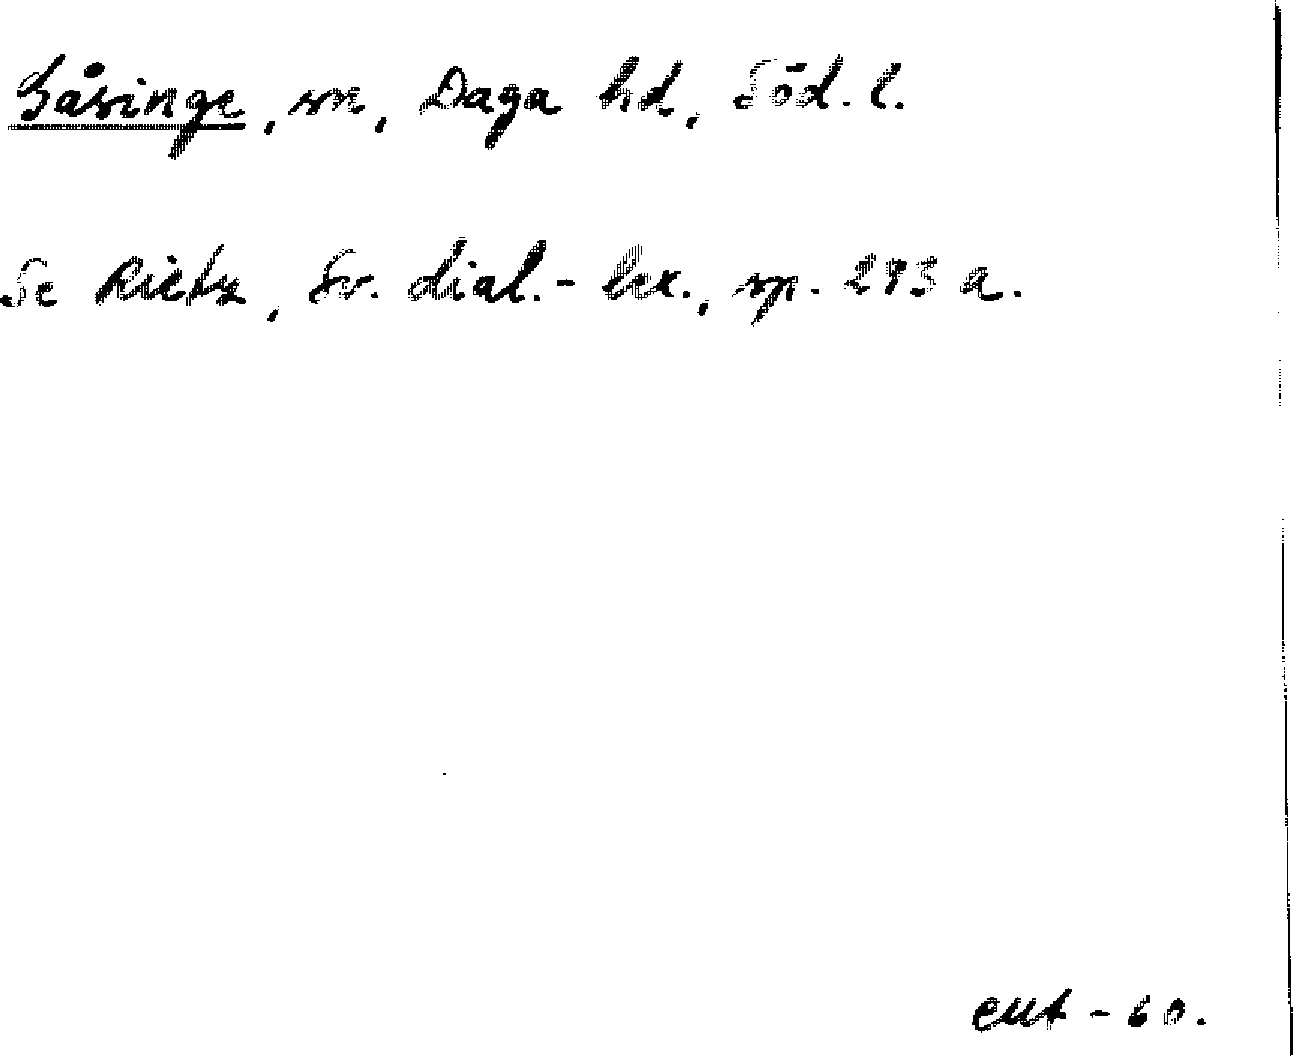 Gåsinge, sn, Daga hd, Söd. l.
Se Rietz, Sv. dial.-lex., sp. 293 a.
EUA - 60.